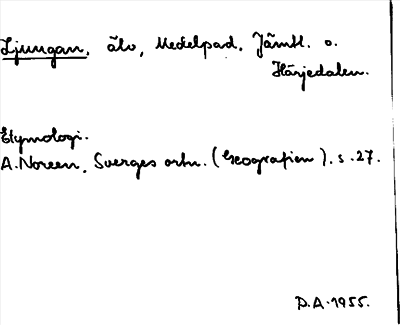 Ljungan, älv, Medelpad. Jämtl. o.
Härjedalen.
Etymologi.
A. Noreen, Sverges ortn. (Geografien). s. 27.
D.A. 1955.